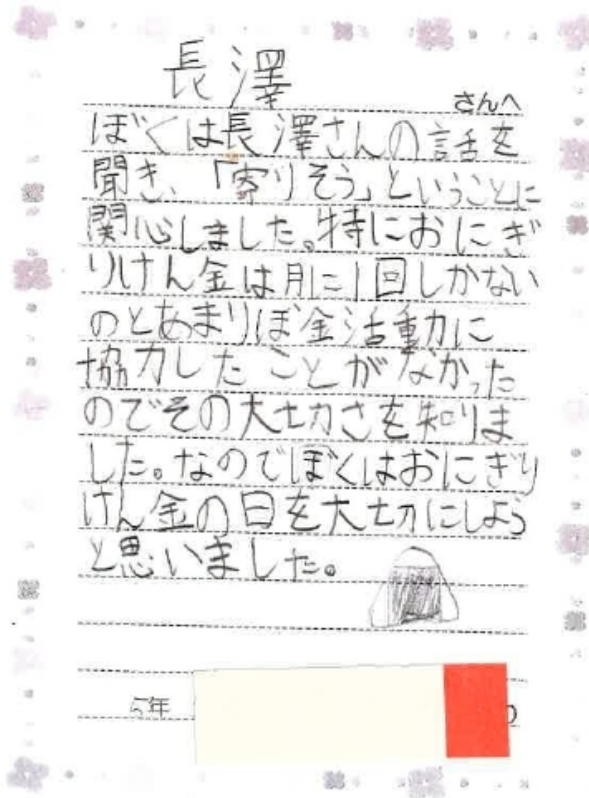 長澤
さんへ
ぼくは長澤さんの話を
聞き、「寄りそう」ということに
関心しました。特におにぎ
りけん金は月に1回しかない
のとあまりぼ金活動に
協力したことがなかった
のでその大切さを知りま
した。なのでぼくはおにぎり
けん金の日を大切にしよう
と思いました。
5年